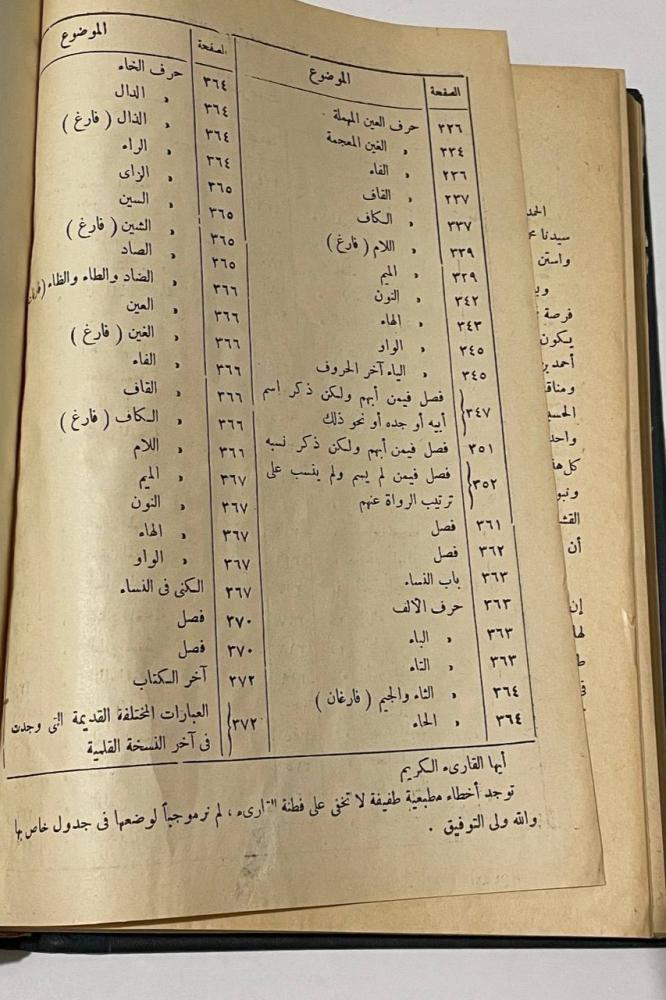 الصفحة الموضوع
٣٢٦ حرف العين المهملة
٣٣٤ « الغين المعجمة
٣٣٦ « الفاء
٣٣٧ « القاف
٣٣٧ « الكاف
٣٣٩ « اللام ( فارغ )
٣٣٩ « الميم
٣٤٢ « النون
٣٤٣ « الهاء
٣٤٥ « الواو
٣٤٥ « الياء آخر الحروف
٣٤٧ فصل فيمن أبهم ولكن ذكر اسم
أبيه أو جده أو نحو ذلك
٣٥١ فصل فيمن أبهم ولكن ذكر نسبه
٣٥٢ فصل فيمن لم يسم ولم ينسب على
ترتيب الرواة عنهم
٣٦١ فصل
٣٦٢ فصل
٣٦٣ باب النساء
٣٦٣ حرف الألف
٣٦٣ « الباء
٣٦٣ « التاء
٣٦٤ « الثاء والجيم ( فارغان )
٣٦٤ « الحاء
الصفحة الموضوع
٣٦٤ حرف الخاء
٣٦٤ « الدال
٣٦٤ « الذال ( فارغ )
٣٦٤ « الراء
٣٦٥ « الزاى
٣٦٥ « السين
٣٦٥ « الشين ( فارغ )
٣٦٥ « الصاد
٣٦٦ « الضاد والطاء والظاء (فارغ
٣٦٦ « العين
٣٦٦ « الغين ( فارغ )
٣٦٦ « الفاء
٣٦٦ « القاف
٣٦٦ « الكاف ( فارغ )
٣٦٦ « اللام
٣٦٧ « الميم
٣٦٧ « النون
٣٦٧ « الهاء
٣٦٧ « الواو
٣٦٧ الكنى فى النساء
٣٧٠ فصل
٣٧٠ فصل
٣٧٢ آخر الكتاب
٣٧٢ العبارات المختلفة القديمة التى وجدت
فى آخر النسخة القلمية
أيها القارىء الكريم
توجد أخطاء مطبعية طفيفة لا تخفى على فطنة القارىء ، لم نر موجباً لوضعها فى جدول خاص بها
والله ولى التوفيق .
الحمد
سيدنا
واستن
فرصة
يكون
أحمد بن
ومناقب
واحد
كل
القش
أن
إن